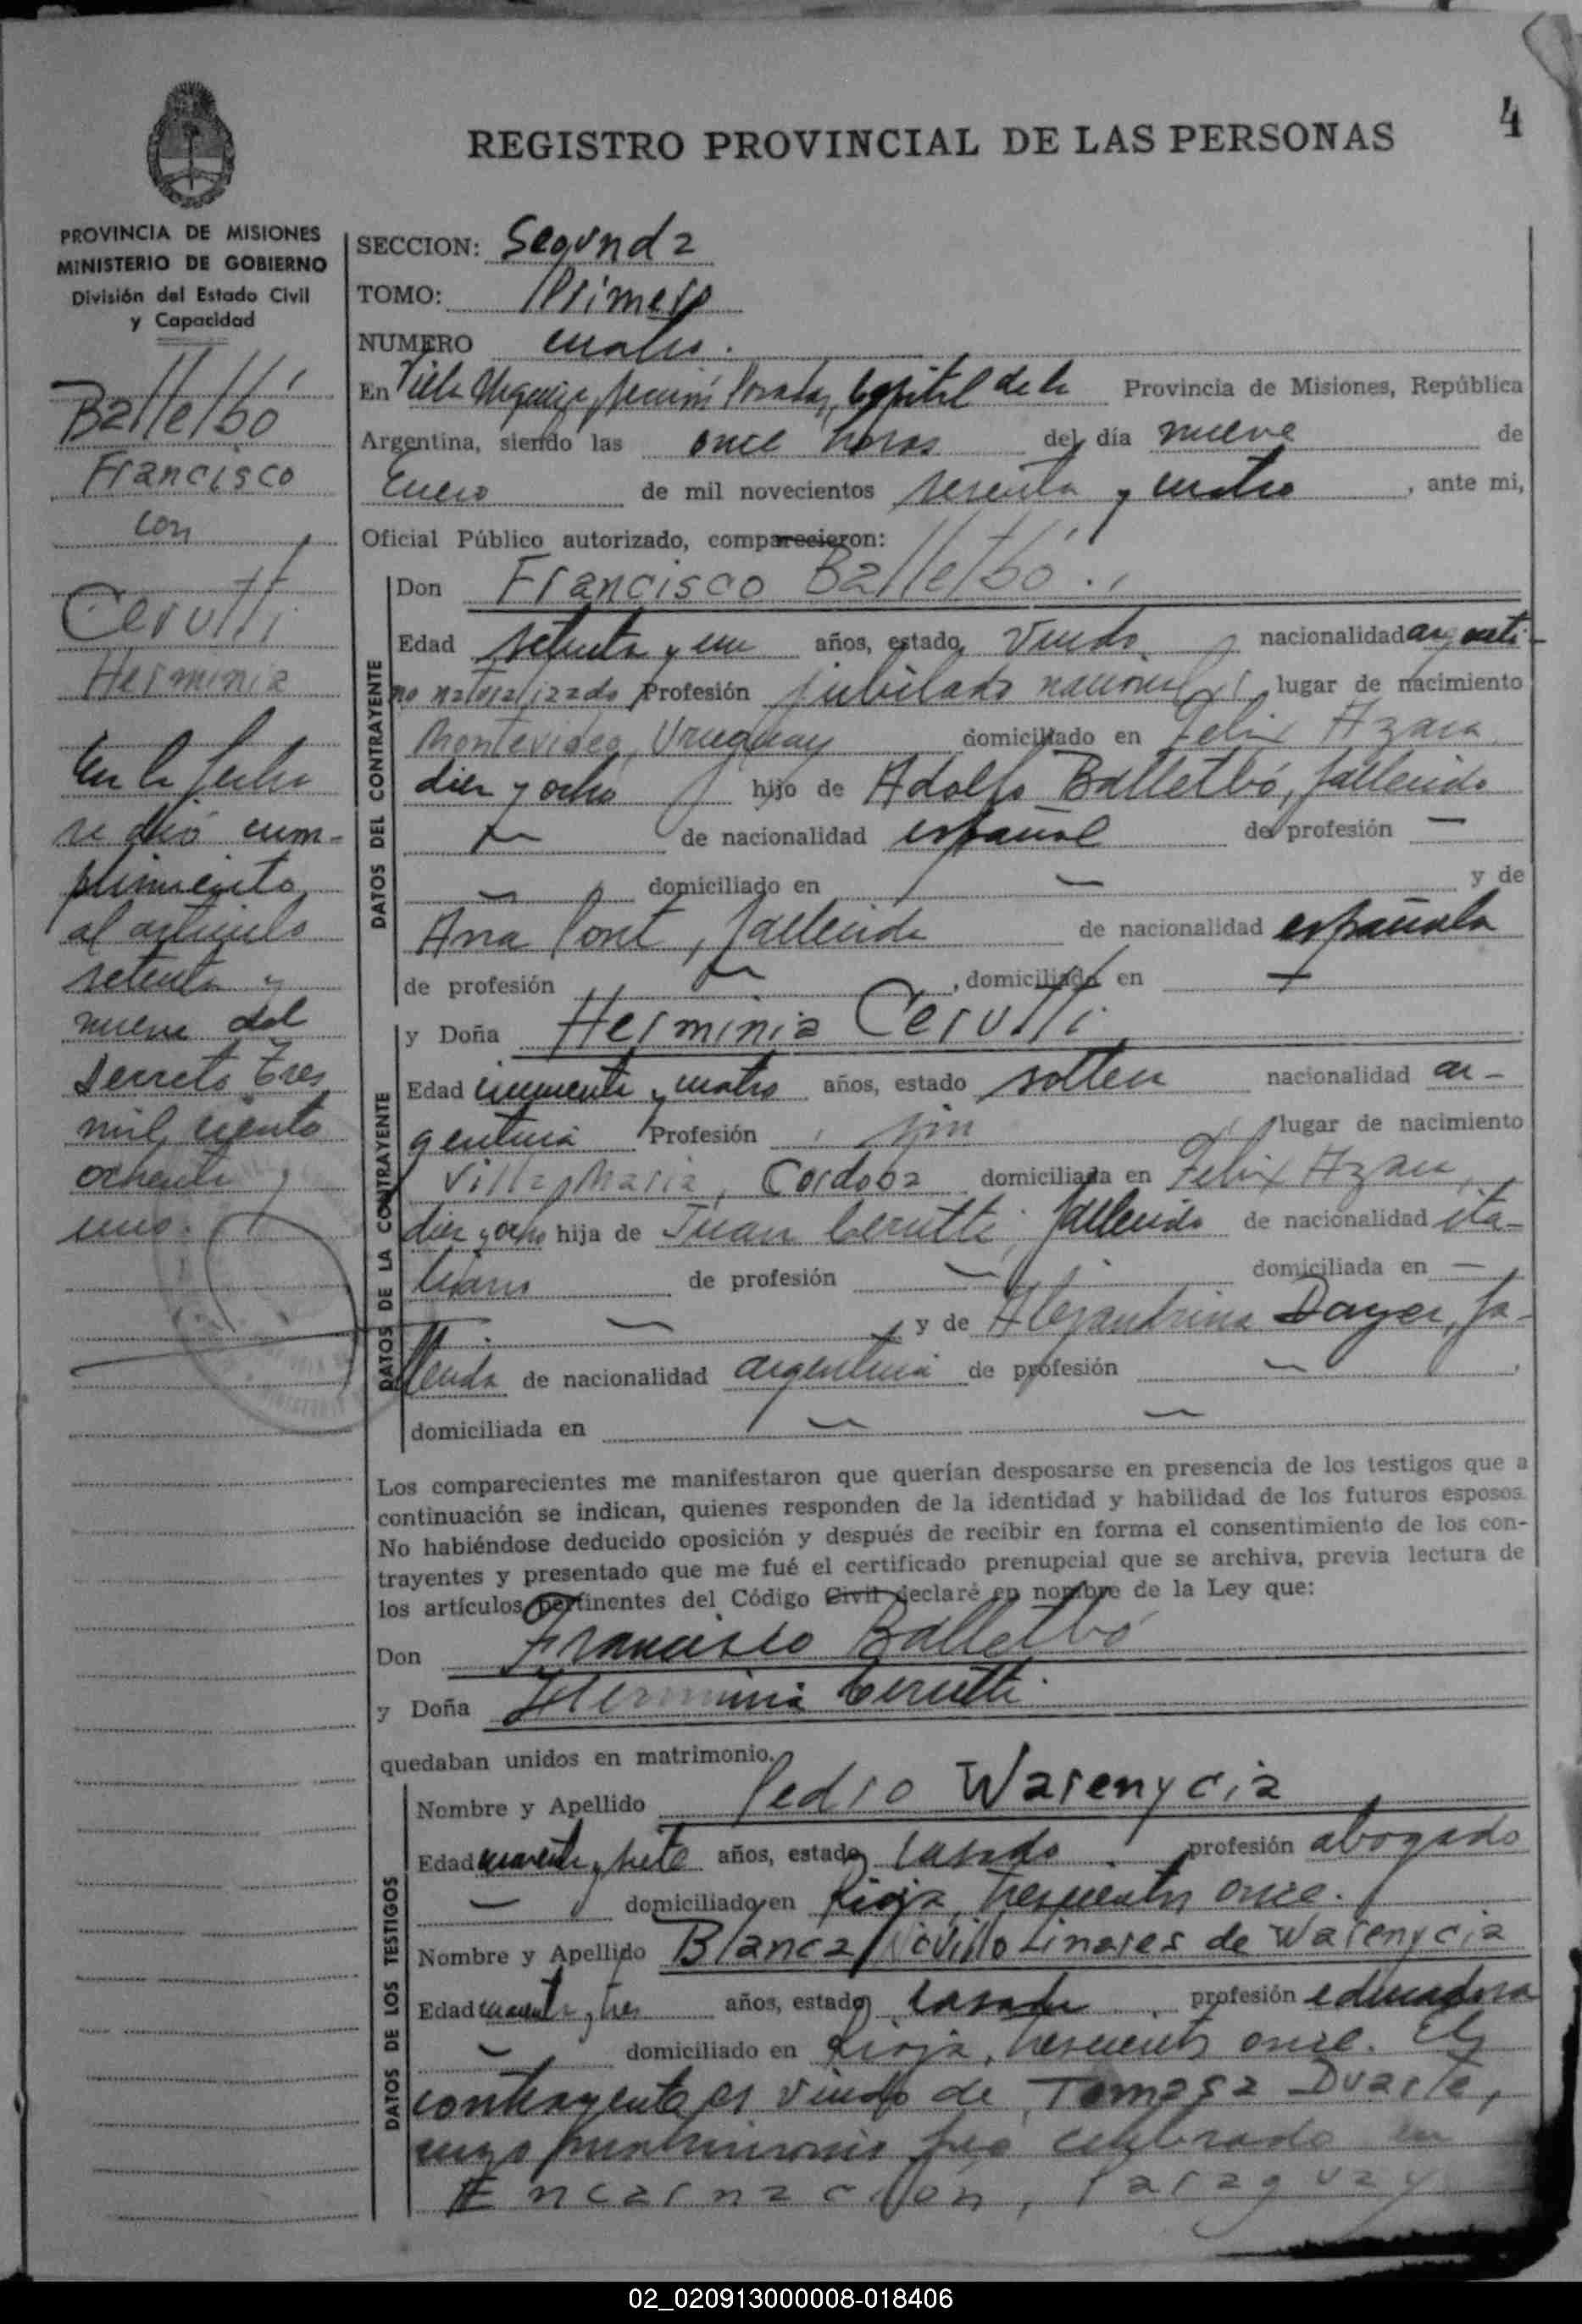 4
REGISTRO PROVINCIAL DE LAS PERSONAS
PROVINCIA DE MISIONES
MINISTERIO DE GOBIERNO
División del Estado Civil
y Capacidad
Balletbó
Francisco
con
Cerutti
Herminia
En la fecha
se dió cum-
plimiento
al artículo
setenta y
nueve del
Decreto Tres
mil ciento
ochenta y
uno.
SECCION: Segunda
TOMO: Primero
NUMERO cuatro.
En Villa Urquiza, Posadas, Capital de la Provincia de Misiones, República
Argentina, siendo las once horas del día nueve de
Enero de mil novecientos sesenta y cuatro, ante mi,
Oficial Público autorizado, comparecieron:
DATOS DEL CONTRAYENTE
Don Francisco Balletbó.
Edad setenta y un años, estado Viudo nacionalidad argenti-
no naturalizado Profesión jubilado nacional lugar de nacimiento
Montevideo, Uruguay domiciliado en Felix Azara
diez y ocho hijo de Adolfo Balletbó, fallecido
— de nacionalidad español de profesión —
— domiciliado en — y de
Ana Pont, fallecida de nacionalidad española
de profesión —, domiciliada en —
DATOS DE LA CONTRAYENTE
y Doña Herminia Cerutti
Edad cincuenta y cuatro años, estado soltera nacionalidad ar-
gentina Profesión sin lugar de nacimiento
Villa Maria, Cordoba domiciliada en Felix Azara,
diez y ocho hija de Juan Cerutti, fallecido de nacionalidad ita-
liano de profesión — domiciliada en —
— y de Alejandrina Dayer, fa-
llecida de nacionalidad argentina de profesión —
domiciliada en — —
Los comparecientes me manifestaron que querían desposarse en presencia de los testigos que a
continuación se indican, quienes responden de la identidad y habilidad de los futuros esposos.
No habiéndose deducido oposición y después de recibir en forma el consentimiento de los con-
trayentes y presentado que me fué el certificado prenupcial que se archiva, previa lectura de
los artículos pertinentes del Código Civil declaré en nombre de la Ley que:
Don Francisco Balletbó
y Doña Herminia Cerutti.
quedaban unidos en matrimonio.
DATOS DE LOS TESTIGOS
Nombre y Apellido Pedro Warenycia
Edad cuarenta y siete años, estado casado. profesión abogado
— domiciliado en Rioja, trescientos once.
Nombre y Apellido Blanca Novillo Linares de Warenycia
Edad cuarenta y tres años, estado casada profesión educadora
— domiciliado en Rioja, trescientos once. El
contrayente es viudo de Tomasa Duarte,
cuyo matrimonio fué celebrado en
Encarnación, Paraguay
02_020913000008-018406